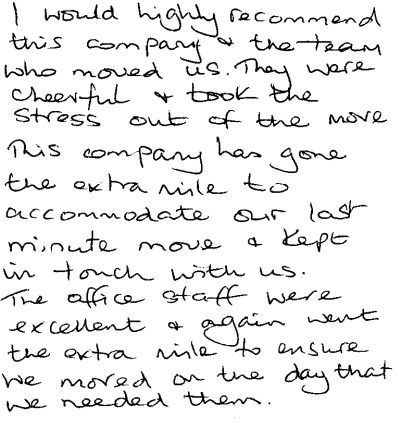 I would highly recommend
this company & the team
who moved us. They were
cheerful & took the
stress out of the move
This company has gone
the extra mile to
accommodate our last
minute move & kept
in touch with us.
The office staff were
excellent & again went
the extra mile to ensure
we moved on the day that
we needed them.